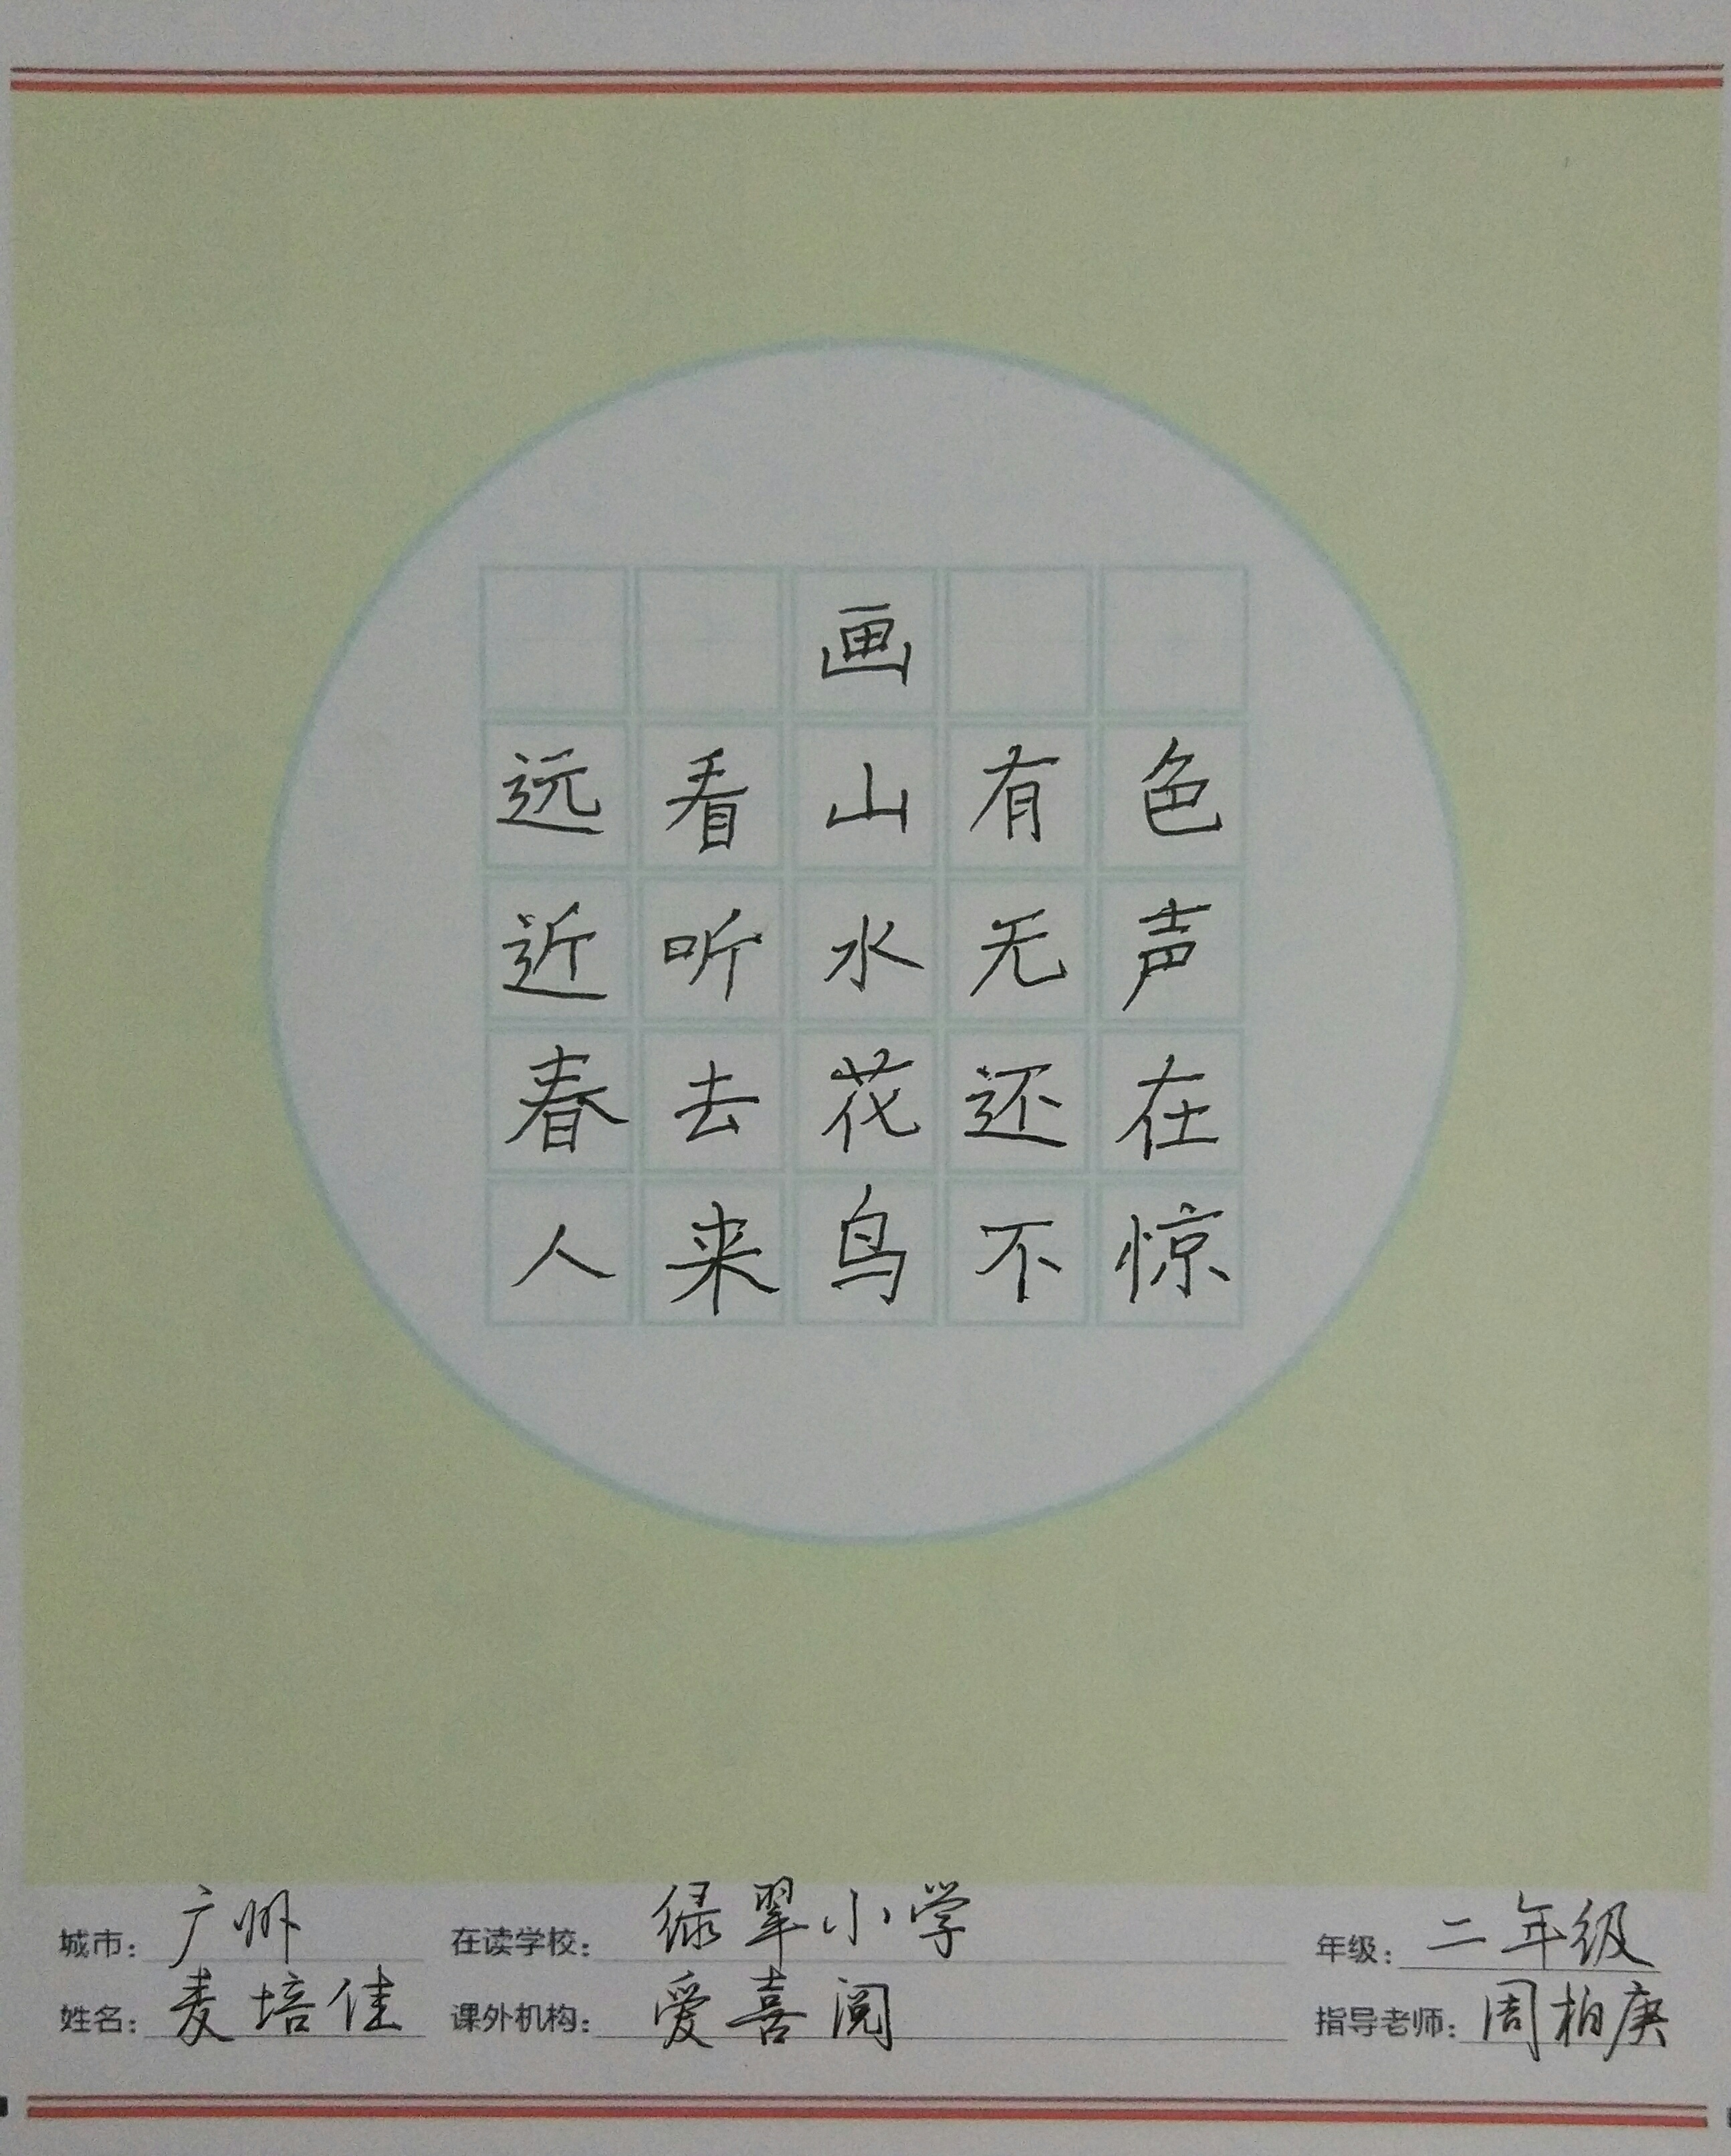 画
远看山有色
近听水无声
春去花还在
人来鸟不惊
城市：广州 在读学校：绿翠小学 年级：二年级
姓名：麦培佳 课外机构：爱喜阅 指导老师：周柏庚